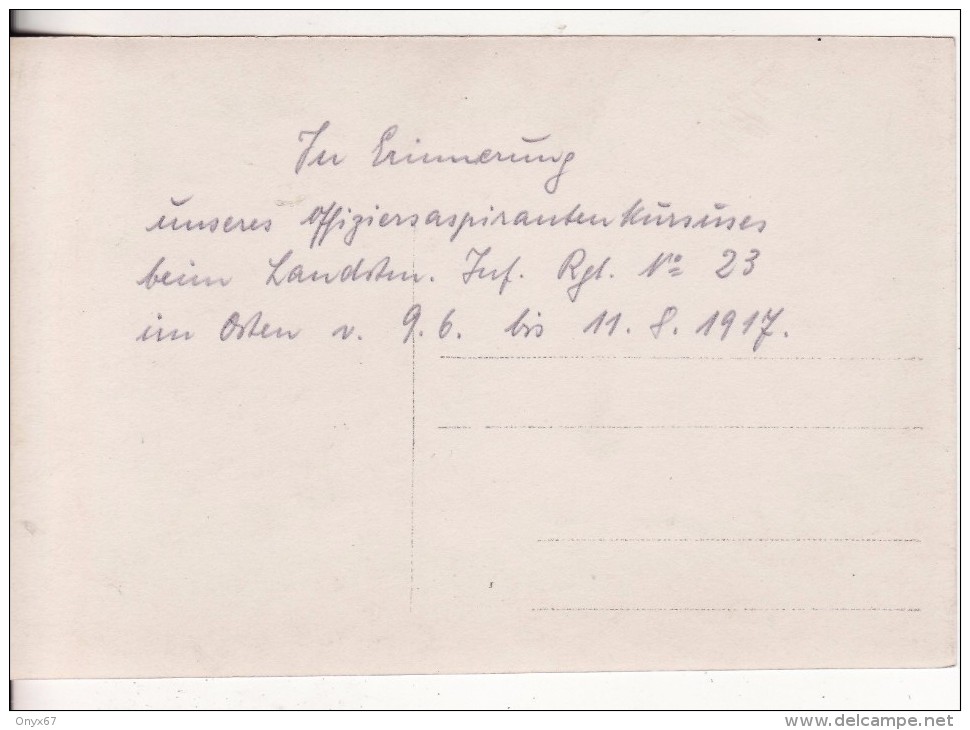 In Erinnerung
unseres Offiziersaspirantenkursuses
beim Landstm. Inf. Rgt. No 23
im Osten v. 9.6. bis 11.8.1917.
Onyx67
www.delcampe.net